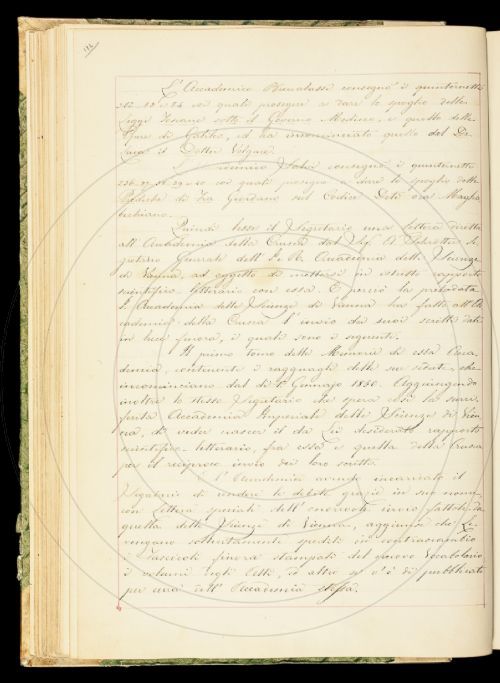 L'Accademico Bencini consegnò i quinternetti
coi quali prosegue a dare lo spoglio delle
Leggi Toscane sotto il Governo Mediceo, e quello delle
Opere di Galileo, ed ha incominciato quello del
il Dottor Volgare.
consegnò i quinternetti
coi quali prosegue a dare lo spoglio delle
Prediche di Fra Giordano sul Codice
Quindi lesse il Segretario una lettera diretta
all'Accademia della Crusca dal Sig. A. Schrötter Se-
gretario Generale dell'I. e R. Accademia delle Scienze
di Vienna, ad oggetto di mettersi in istretto rapporto
scientifico letterario con essa. E perciò la prelodata
I. Accademia delle Scienze di Vienna ha fatto all'Ac
cademia della Crusca l'invio dei suoi scritti dati
in luce finora, i quali sono i seguenti.
Il primo tomo delle Memorie di essa Acca-
demia, contenente i ragguagli delle sue sedute, che
incominciano dal dì 1° Gennajo 1850. Aggiungendo
inoltre lo stesso Segretario che spera così la sum.
ferita Accademia Imperiale delle Scienze di Vien
na, di veder nascer il da Lei desiderato rapporto
scientifico-letterario, fra essa e quella della Crusca
per il reciproco invio dei loro scritti.
E l'Accademia avendo incaricato il
Segretario di rendere le debite grazie in suo nome,
con Lettera speciale dell'onorevole invio fattole da
quella delle Scienze di Vienna, aggiunse che Le
vengano sollecitamente spediti in contraccambio
i fascicoli finora stampati del nuovo Vocabolario
i volumi degli Atti, ed altro se v'è di pubblicato
per cura dell'Accademia stessa.